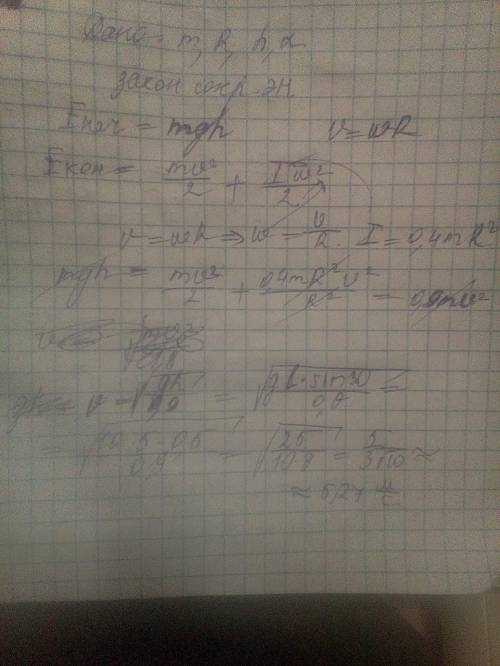 Дано: m, R, h, α
закон сохр. эн.
Eнач = mgh v=wR
Eкон = mv²/2 + Iw²/2
v = wR ⇒ w = v/R. I = 0,4mR²
mgh = mv²/2 + 0,4mR²v²/R² = 0,9mv²
v = √(gh/0,9) = √(gL·sin30/0,9) =
= √(10·5·0,5/0,9) = √(25/0,9) = ≈
≈ 5,27 м/с